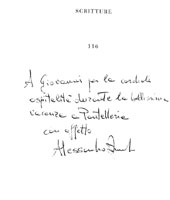 SCRITTURE
116
A Giovanni per la cordiale
ospitalità durante la bellissima
vacanza a Pantelleria
con affetto
Alessandro